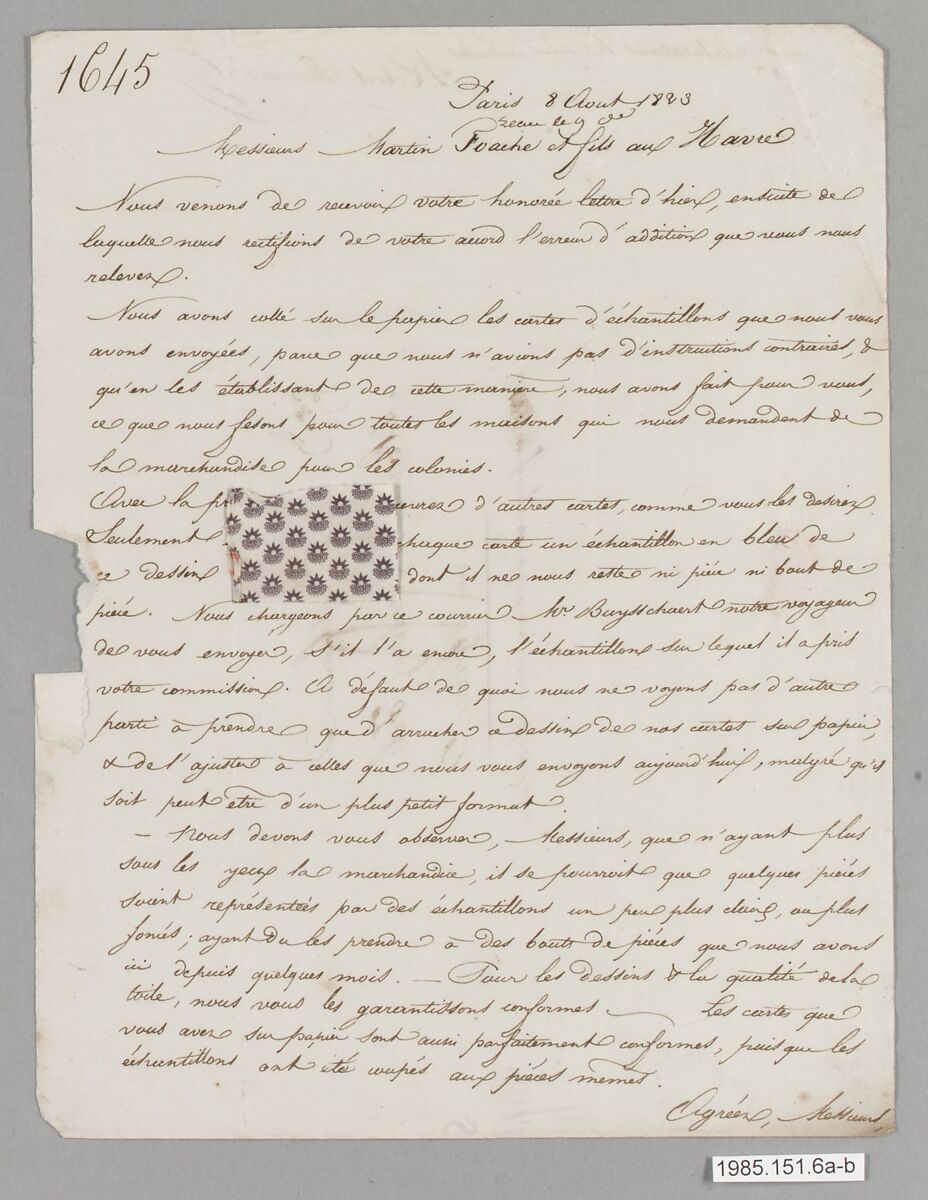 1645
Paris 8 Aout 1823
reçue le 9 do
Messieurs Martin Foache et fils au Havre
Nous venons de recevoir votre honorée lettre d'hier, ensuite de
laquelle nous rectifions de votre acord l'erreur d'addition que vous nous
relevez.
Nous avons collé sur le papier les cartes d'échantillons que nous vous
avons envoyées, parce que nous n'avions pas d'instructions contraires, &
qu'en les établissant de cette manière, nous avons fait pour vous,
ce que nous fesons pour toutes les maisons qui nous demandent de
la marchandise pour les colonies.
Avec la pr uvrez d'autres cartes, comme vous les desirez.
Seulement chaque carte un échantillon en bleu de
ce dessin dont il ne nous reste ni piéce ni bout de
piéce. Nous chargeons par ce courrier Mr. Buysschaert notre voyageur
de vous envoyer, s'il l'a encore, l'échantillon sur lequel il a pris
votre commission. A défaut de quoi nous ne voyons pas d'autre
parti à prendre que d'arracher ce dessin de nos cartes sur papier,
& de l'ajuster à celles que nous vous envoyons aujourd'hui, malgré qu'il
soit peut etre d'un plus petit format.
— Nous devons vous observer, Messieurs, que n'ayant plus
sous les yeux la marchandise, il se pourroit que quelques piéces
soient représentées par des échantillons un peu plus clairs, ou plus
foncés; ayant du les prendre à des bouts de piéces que nous avons
ici depuis quelques mois. — Pour les dessins & la qualité de la
toile, nous vous les garantissons conformes. — Les cartes que
vous avez sur papier sont aussi parfaitement conformes, puisque les
échantillons ont été coupés aux piéces mêmes.
Agréez, Messieurs,
1985.151.6a-b